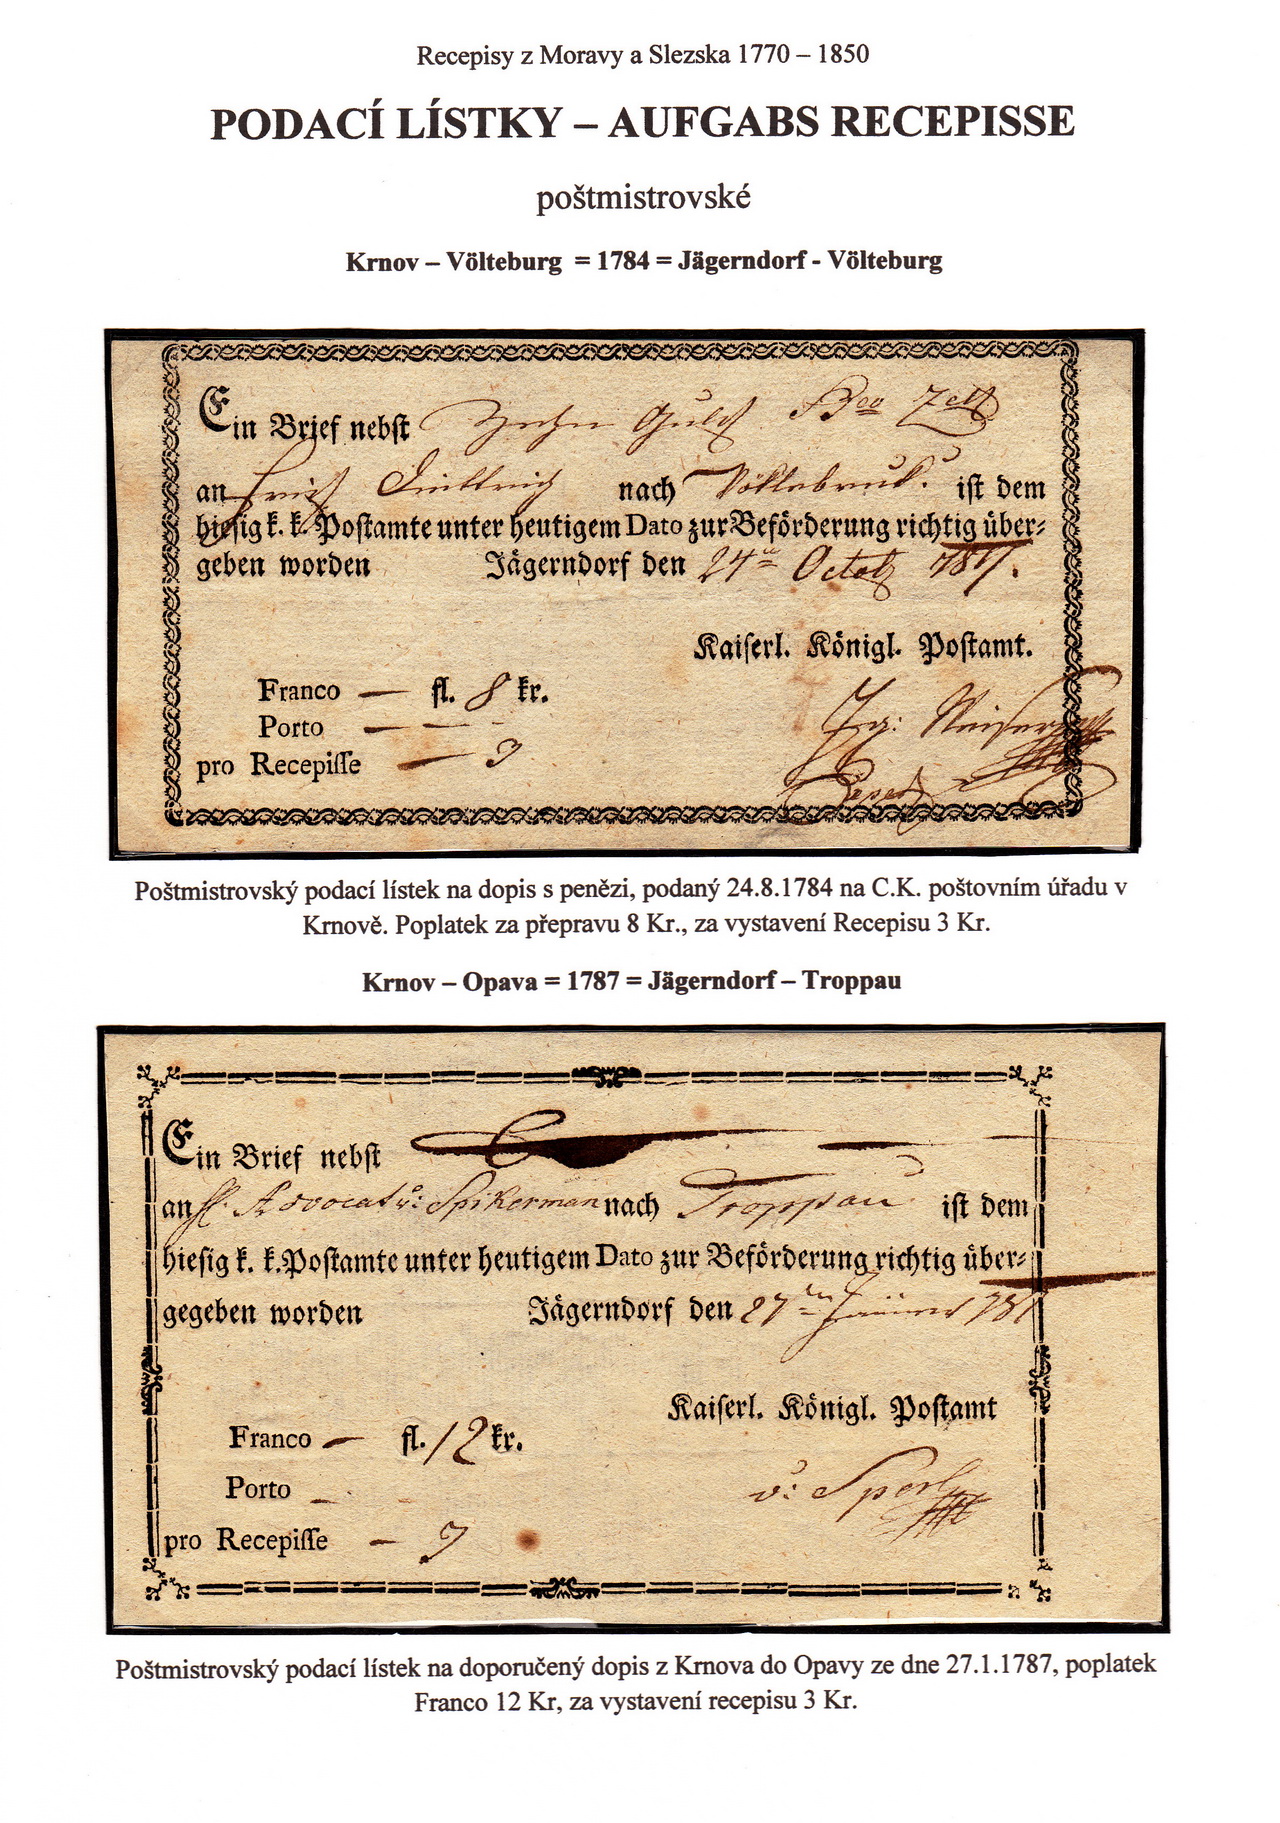 Recepisy z Moravy a Slezska 1770 – 1850
PODACÍ LÍSTKY – AUFGABS RECEPISSE
poštmistrovské
Krnov – Völteburg = 1784 = Jägerndorf - Völteburg
Ein Brief nebſt
an nach ist dem
hieſig k. k. Poſtamte unter heutigem Dato zur Beförderung richtig über⸗
geben worden Jägerndorf den 24
Kaiſerl. Königl. Poſtamt.
Franco — fl. 8 kr.
Porto — —
pro Recepiſſe — 3
Poštmistrovský podací lístek na dopis s penězi, podaný 24.8.1784 na C.K. poštovním úřadu v
Krnově. Poplatek za přepravu 8 Kr., za vystavení Recepisu 3 Kr.
Krnov – Opava = 1787 = Jägerndorf – Troppau
Ein Brief nebſt
an Advocat v: Spikerman nach Troppau iſt dem
hieſig k. k. Poſtamte unter heutigem Dato zur Beförderung richtig über⸗
gegeben worden Jägerndorf den 27
Kaiſerl. Königl. Poſtamt
Franco — fl. 12 kr.
Porto —
v: Sperl
pro Recepiſſe — 3
Poštmistrovský podací lístek na doporučený dopis z Krnova do Opavy ze dne 27.1.1787, poplatek
Franco 12 Kr, za vystavení recepisu 3 Kr.